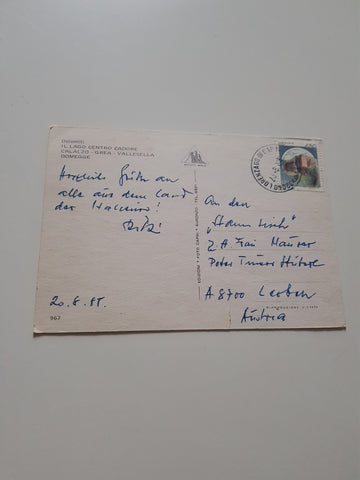 Dolomiti
IL LAGO CENTRO CADORE
CALALZO - GREA - VALLESELLA
DOMEGGE
Herzliche Grüße an
alle aus dem Land
der
20.8.85.
967
EDIZIONI FOTO CAPRI
An den
"Stammtisch"
z. H. Frau
Peter Tunner Straße
A 8700 Leoben
Austria
LORENZAGO